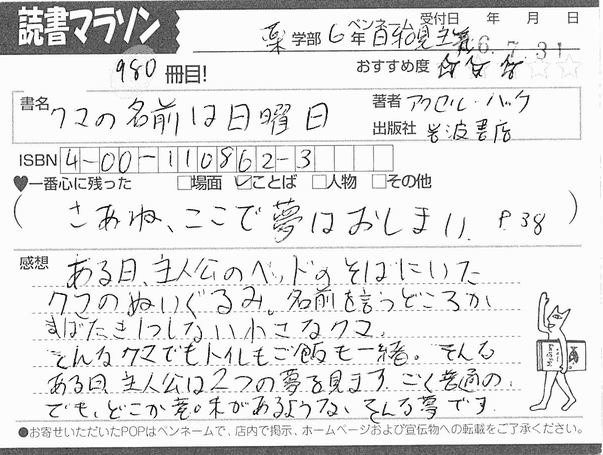 読書マラソン
薬学部 6年 ペンネーム 日和見主義 受付日 年 月 日
6.7.31
980冊目! おすすめ度 ☆☆☆☆☆
書名 クマの名前は日曜日 著者 アクセル・ハッケ
出版社 岩波書店
ISBN 4-00-110862-3
♥一番心に残った □場面 ☑ことば □人物 □その他
(さあね、ここで夢はおしまい. P.38)
感想 ある日、主人公のベッドのそばにいた
クマのぬいぐるみ。名前を言うどころか
まばたき1つしない小さなクマ.
そんなクマでもトイレもご飯も一緒。そんな
ある日、主人公は2つの夢を見ます.ごく普通の.
でも、どこか意味があるような、そんな夢です.
●お寄せいただいたPOPはペンネームで、店内で掲示、ホームページおよび宣伝物への転載をご了承ください。